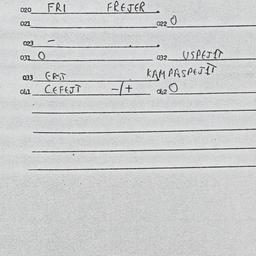 020 FRI FREJER
021 022 O
023 -
031 O 032 USPEJIT
033 ERIT KAMPASPEJIT
041 CEFEJT -/+ 042 O